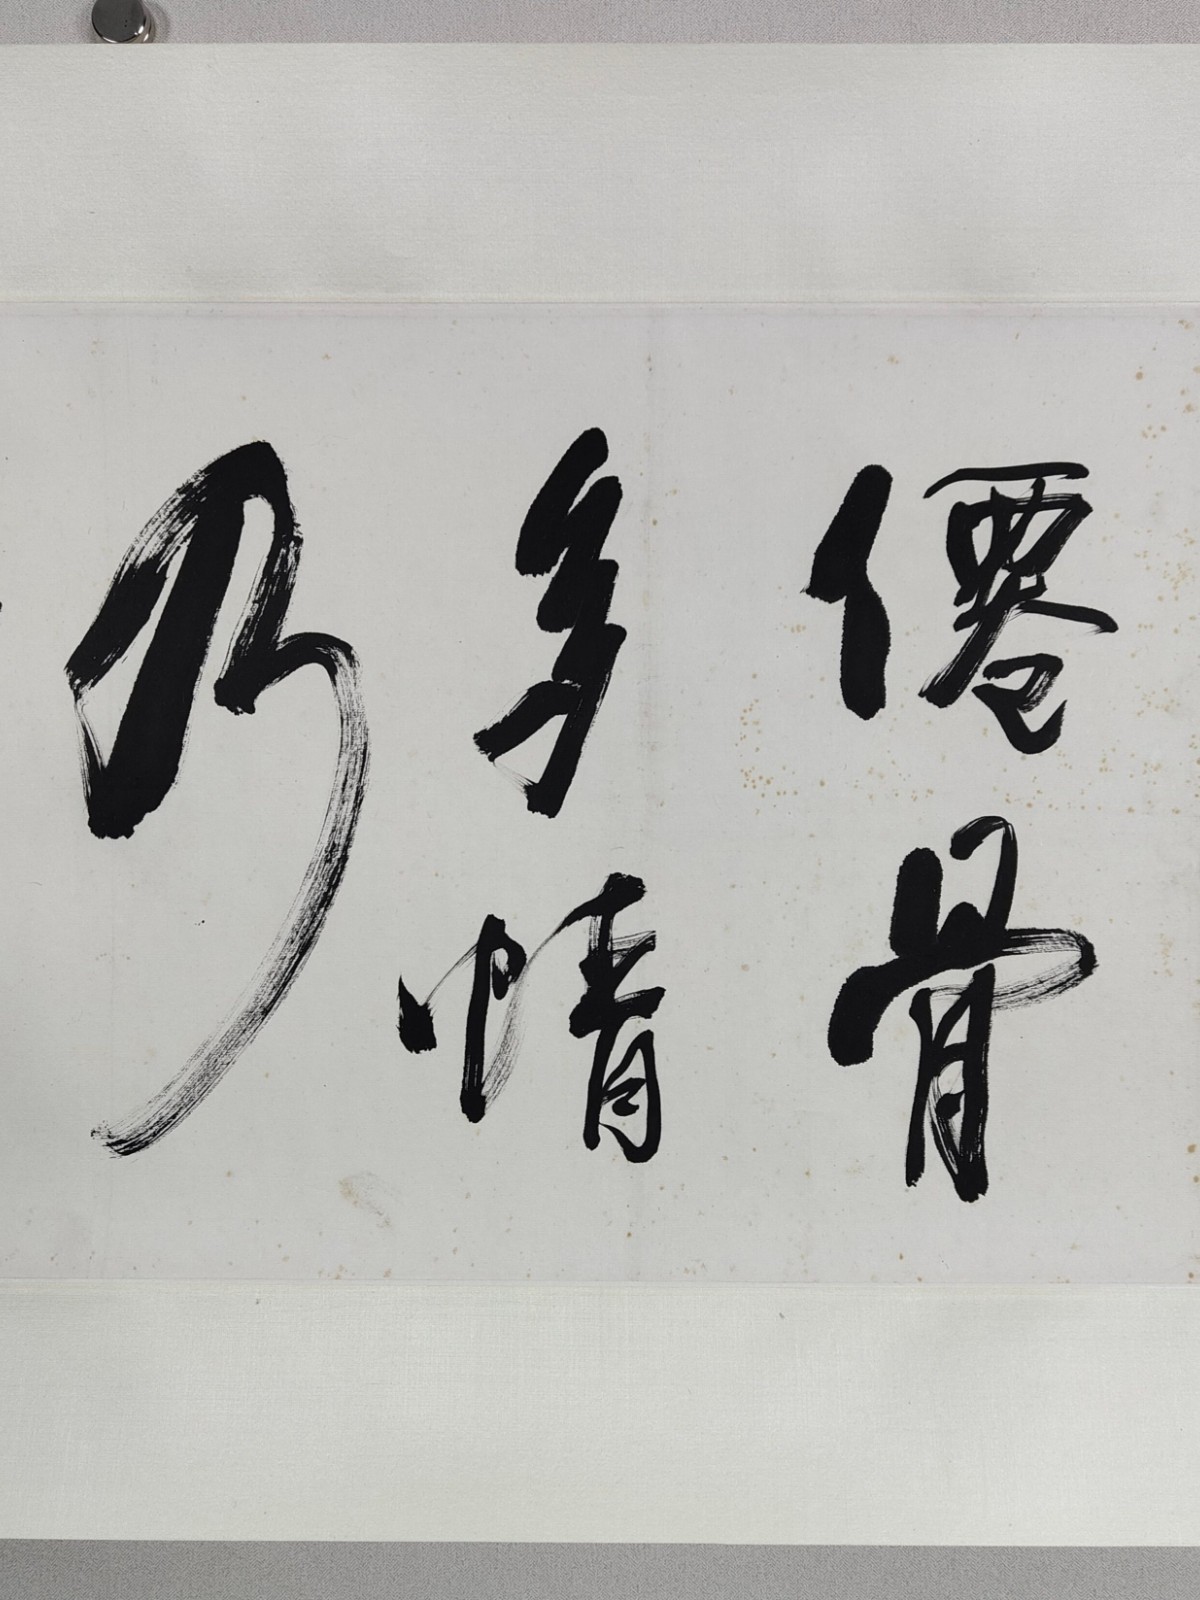 僊骨
多情
乃